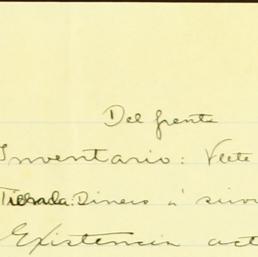 Del frente
Inventario: Vlete
Tiehrada: Dinero á
Existencia act